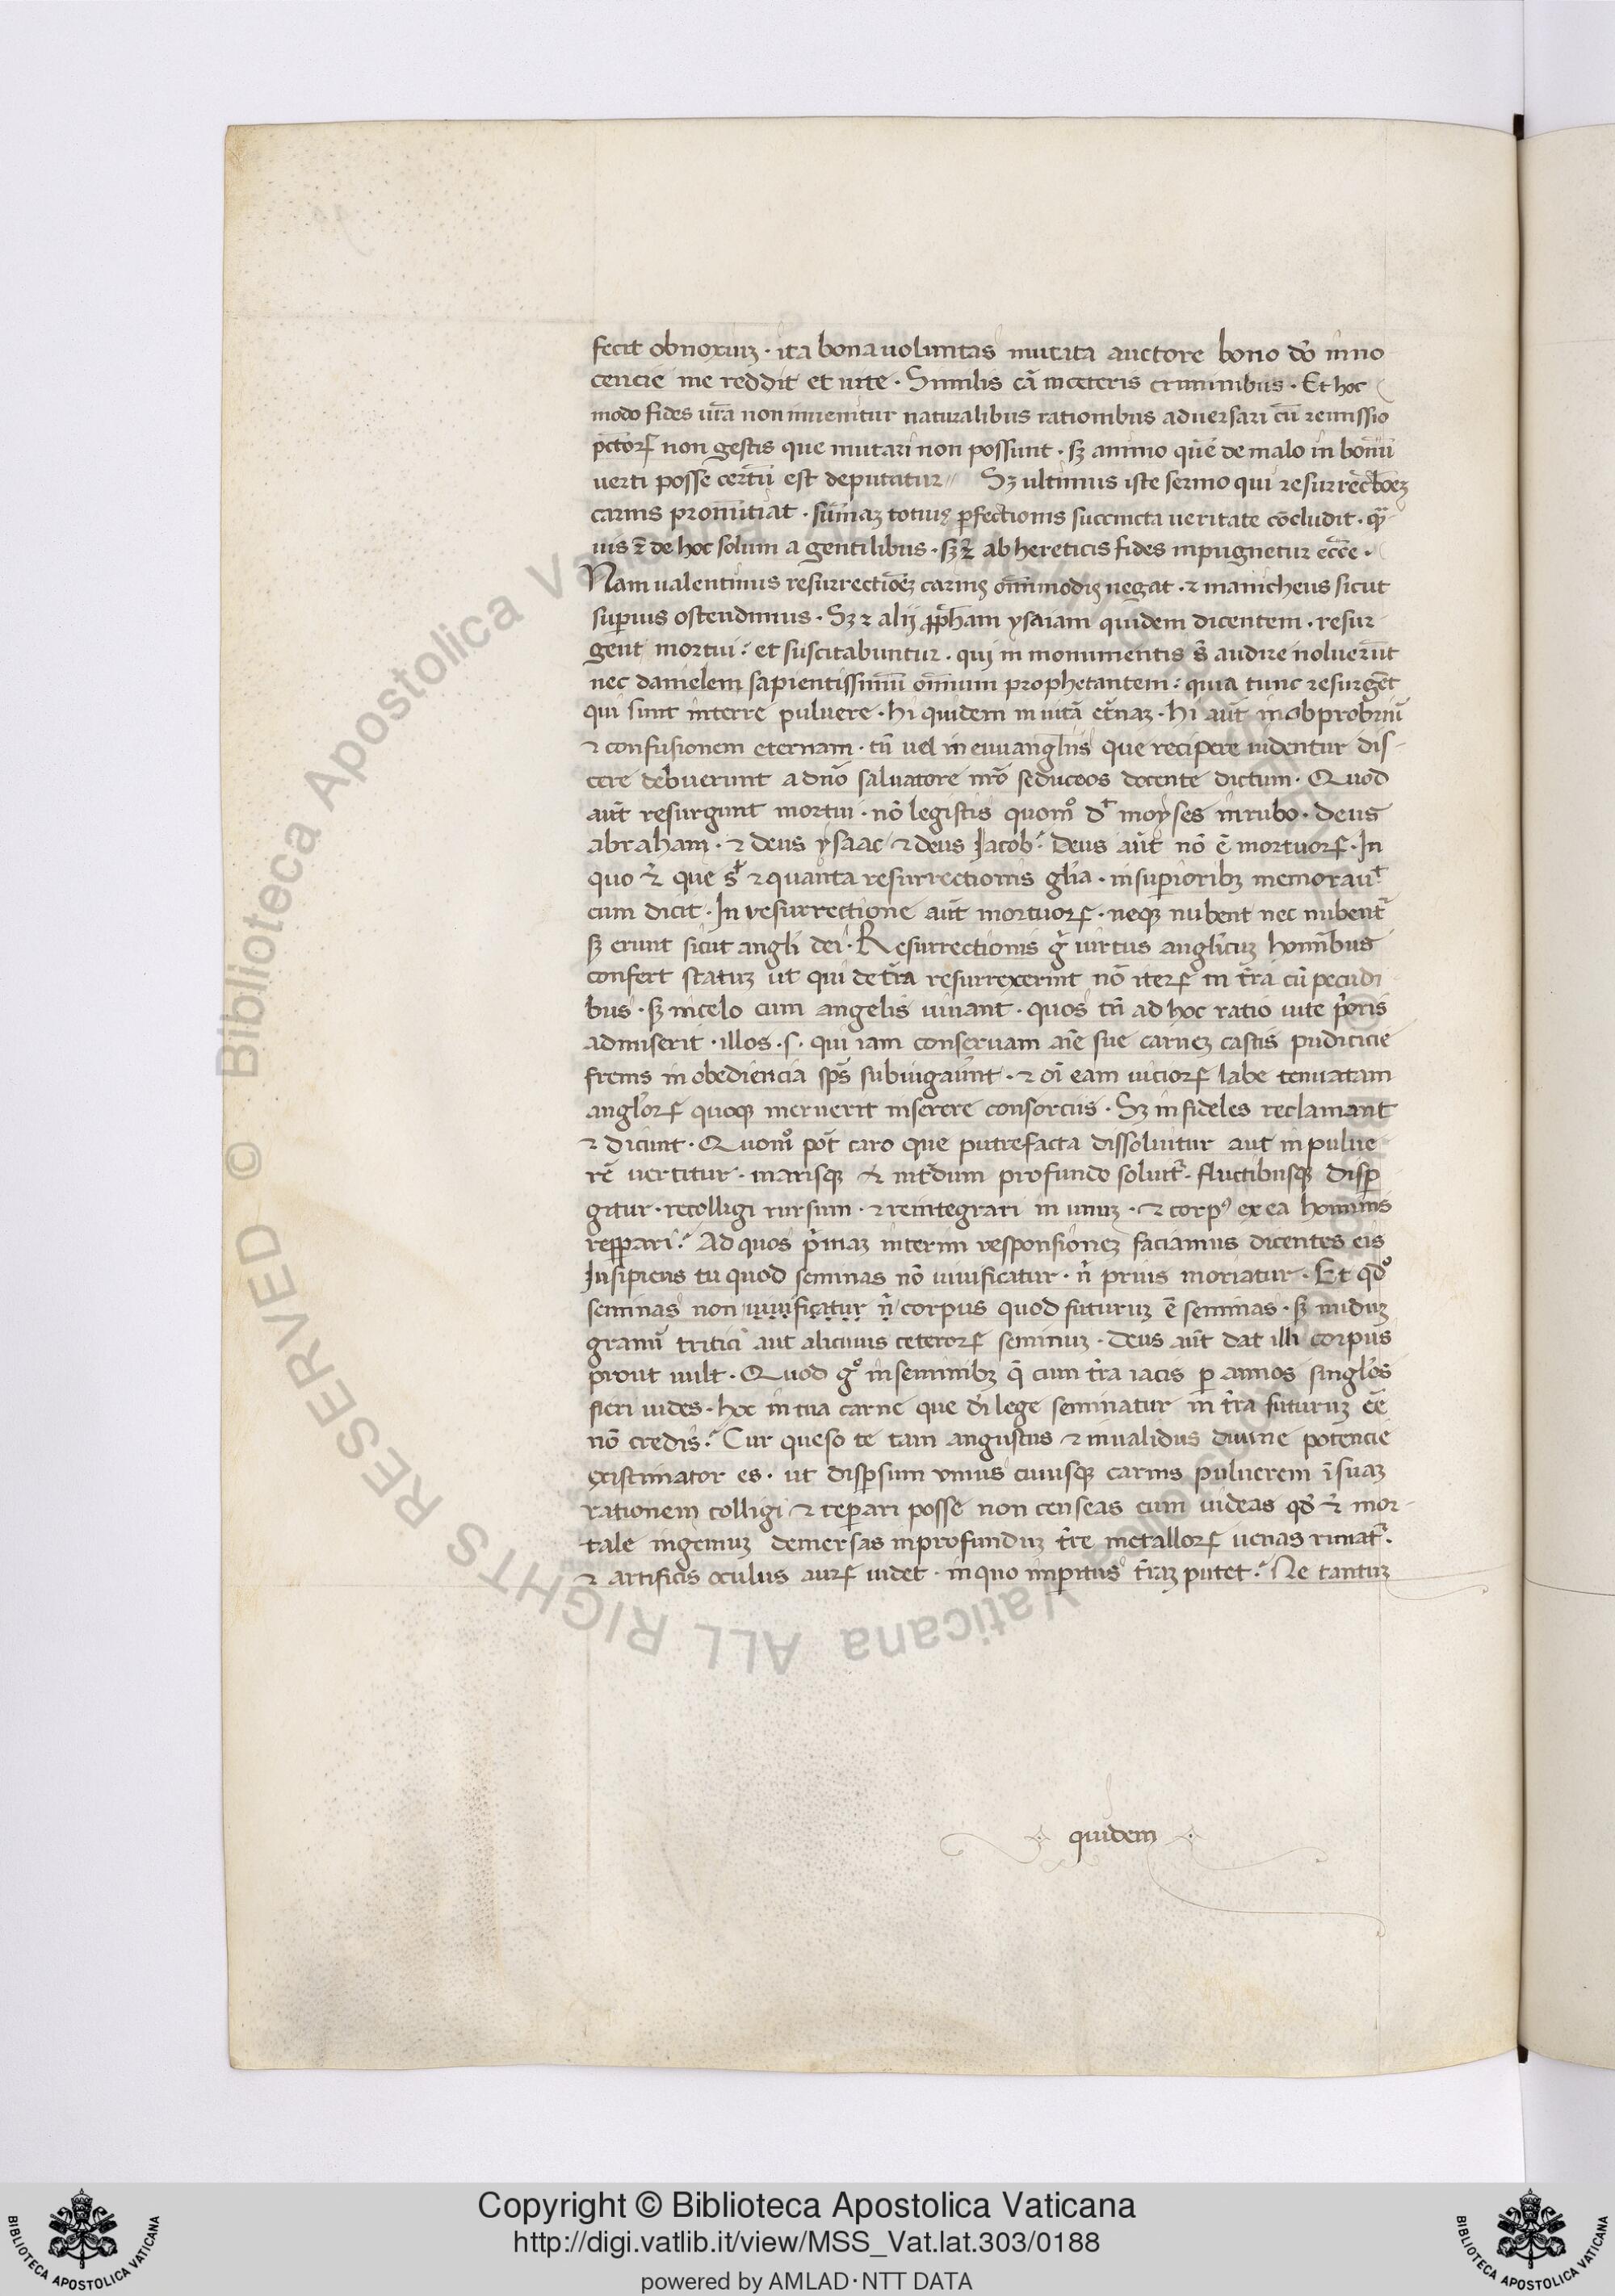 fecit obnoxiuʒ · ita bona uoluntas mutata auctore bono dō inno
cencie me reddit et uite · Similis cā in ceteris criminibus · Et hoc
modo fides ur̄a non inuenitur naturalibus rationibus aduersari cū remissio
pctōrꝝ non gestis que mutari non possunt · sʒ animo quē de malo in bonū
uerti posse certū est deputatur // Sʒ ultimus iste sermo qui resurrectōeʒ
carnis pronūtiat · sūmaʒ totius perfectionis succincta ueritate cōcludit · quā
uis ⁊ de hoc solum a gentilibus · sʒ ⁊ ab hereticis fides inpugnetur ecc̄e ·
Nam ualentinus resurrectiōeʒ carnis om̄imodis negat · ⁊ manicheus sicut
supius ostendimus · Sʒ ⁊ alij ꝓph̄am ysaiam quidem dicentem · resur
gent mortui : et suscitabuntur · qui in monumentis s̄ audire noluerūt
nec danielem sapientissimū om̄ium prophetantem : quia tunc resurgēt
qui sunt in terre puluere · hi quidem in uitā et̄naʒ · hi aūt in obprobriū
⁊ confusionem eternam · tn̄ uel in euuangliis que recipere uidentur dis-
cere debuerunt a dn̄o saluatore nr̄o seduceos docente dictum · Quod
aūt resurgunt mortui · nō legistis quomͦ dt moyses in rubo · deus
abraham · ⁊ deus ysaac ⁊ deus Jacob : Deus aūt nō ē mortuorꝝ · In
quo ⁊ que st ⁊ quanta resurrectionis glīa · in superioribʒ memorauit
cum dicit · In resurrectione aūt mortuorꝝ · neqʒ nubent nec nubent̄
sʒ erunt sicut angli dei · Resurrectionis ḡ uirtus anglicuʒ hominībus
confert statuʒ ut qui de tr̄a resurrexerint nō iterꝝ in tr̄a cū pecudi
bus · sʒ in celo cum angelis uiuant · quos tn̄ ad hoc ratio uite p̄oris
admiserit · illos · s · qui iam conseruam aīe sue carneʒ castis pudicicie
frenis in obediencia sp̄s subiugaūnt · ⁊ oī eam uiciorꝝ labe tenuatam
anglorꝝ quoqʒ meruerit inserere consorciis · Sʒ infideles reclamant
⁊ dicunt · Quomͦ pōt caro que putrefacta dissoluitur aut in pulue
rē uertitur · marisqʒ ⁊ int̄dum profundo soluit̄ · fluctibusqʒ disp
gitur · recolligi rursum · ⁊ reintegrari in unuʒ · ⁊ corpꝰ ex ea hominis
reppari : Ad quos p̄maʒ interim responsioneʒ faciamus dicentes eis
Insipiens tu quod seminas nō uiuificatur · n̄ prius moriatur · Et qdͦ
seminas non uiuificatur n̄ corpus quod futuruʒ ē seminas · sʒ nuduʒ
granū tritici aut alicuius ceterorꝝ seminuʒ · Deus aūt dat illi corpus
prout uult · Quod gͦ in seminibʒ q̄ cum tr̄a iacis p annos singlos
fieri uides · hoc in tua carne que di lege seminatur in tr̄a futuruʒ eē
nō credis : Cur queso te tam angustus ⁊ inualidus diuine potencie
existimator es · ut dispsum vnius cuiusqʒ carnis puluerem ī suaʒ
rationem colligi ⁊ repari posse non censeas cum uideas qd̄ ⁊ mor-
tale ingeniuʒ demersas in profunduʒ tr̄e metallorꝝ uenas rimat̄ ·
⁊ artificis oculus aurꝝ uidet · in quo imperitus tr̄aʒ putet : Ne tantuʒ
quidem
Copyright © Biblioteca Apostolica Vaticana
http://digi.vatlib.it/view/MSS_Vat.lat.303/0188
powered by AMLAD·NTT DATA
BIBLIOTECA APOSTOLICA VATICANA
BIBLIOTECA APOSTOLICA VATICANA
© Biblioteca Apostolica Vaticana ALL RIGHTS RESERVED